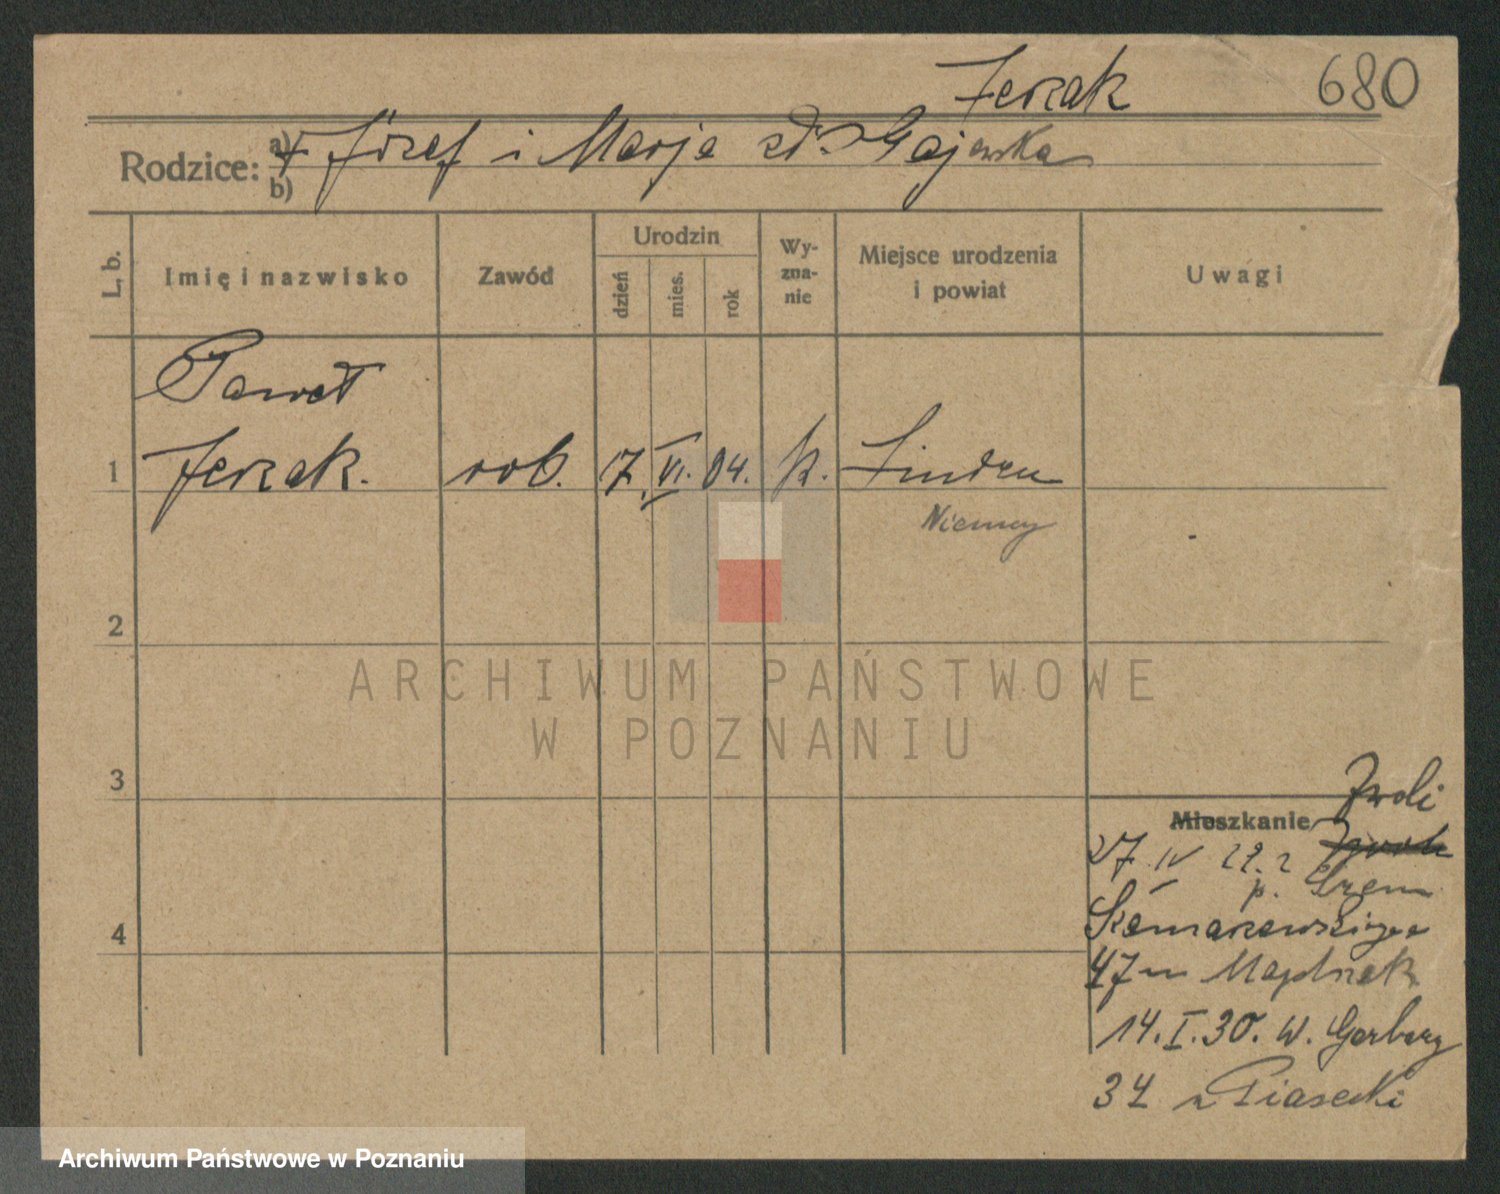 Jerzak 680
Rodzice: a) Józef i Marja zd. Gajewska
b)
L. b. Imię i nazwisko Zawód Urodzin dzień mies. rok Wyznanie Miejsce urodzenia i powiat Uwagi
Paweł
1 Jerzak. rob. 17. VI. 04. k. Linden
Niemcy
2
ARCHIWUM PAŃSTWOWE
W POZNANIU
3
Mieszkanie
27 IV 29. z
p. Śrem
4
47 m Majchrzak
14. I. 30. W. Garbary
34 Piasecki
Archiwum Państwowe w Poznaniu